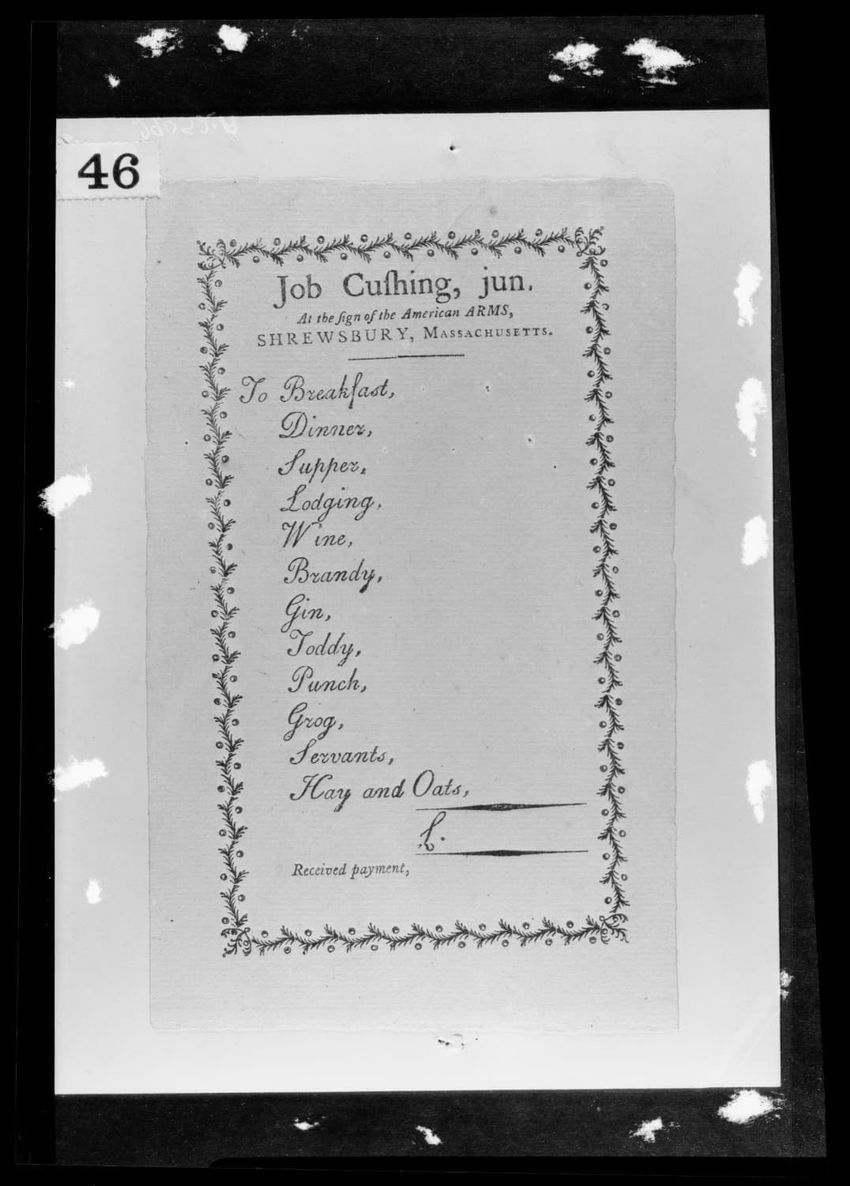 46
Job Cuſhing, jun.
At the ſign of the American ARMS,
SHREWSBURY, MASSACHUSETTS.
To Breakfast,
Dinner,
Supper,
Lodging,
Wine,
Brandy,
Gin,
Toddy,
Punch,
Grog,
Servants,
Hay and Oats,
£.
Received payment,